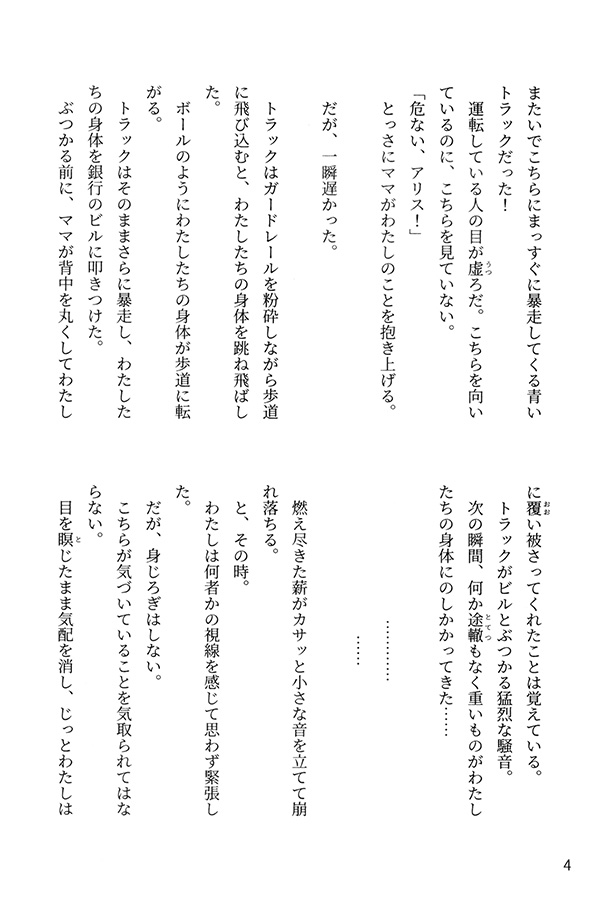 またいでこちらにまっすぐに暴走してくる青い
トラックだった！
　運転している人の目が虚ろだ。こちらを向い
ているのに、こちらを見ていない。
「危ない、アリス！」
　とっさにママがわたしのことを抱き上げる。
だが、一瞬遅かった。
　トラックはガードレールを粉砕しながら歩道
に飛び込むと、わたしたちの身体を跳ね飛ばし
た。
　ボールのようにわたしたちの身体が歩道に転
がる。
　トラックはそのままさらに暴走し、わたした
ちの身体を銀行のビルに叩きつけた。
　ぶつかる前に、ママが背中を丸くしてわたし
に覆い被さってくれたことは覚えている。
　トラックがビルとぶつかる猛烈な騒音。
　次の瞬間、何か途轍もなく重いものがわたし
たちの身体にのしかかってきた……
…………
……
　燃え尽きた薪がカサッと小さな音を立てて崩
れ落ちる。
　と、その時。
　わたしは何者かの視線を感じて思わず緊張し
た。
　だが、身じろぎはしない。
　こちらが気づいていることを気取られてはな
らない。
　目を瞑じたまま気配を消し、じっとわたしは
うつ
おお
とてつ
と
4